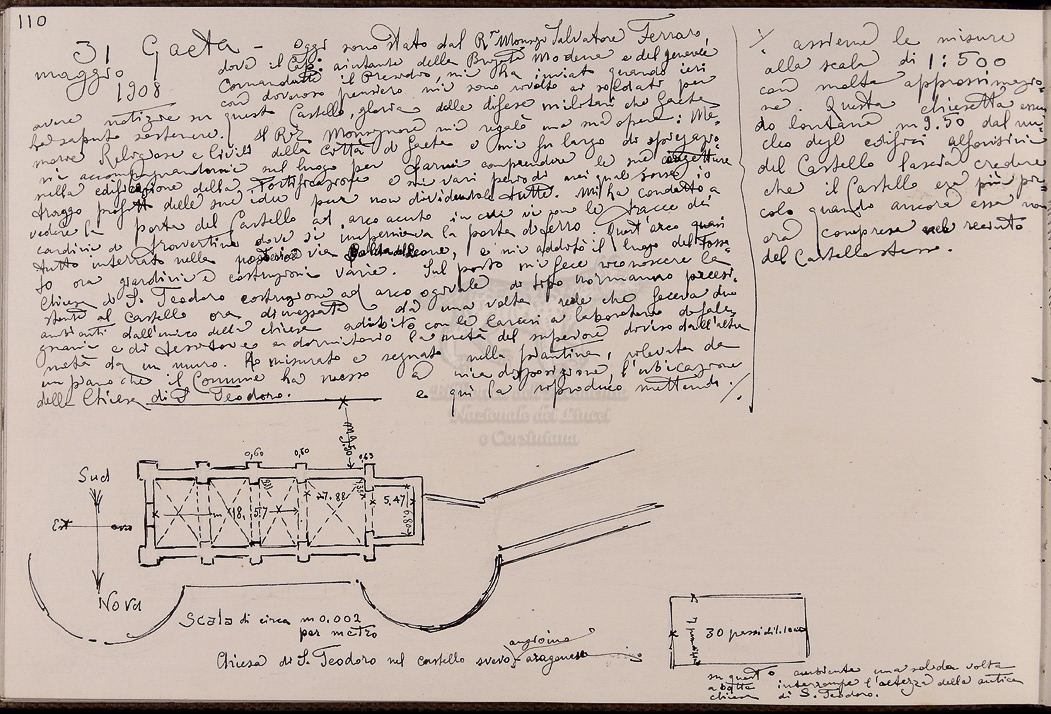 110
31 Gaeta - Oggi sono stato dal R.r Monsig.r Salvatore Ferraro,
maggio
1908
dove il Cap. aiutante della Brigata Modena e del generale
Comandante il Presidio, mi ha inviato quando ieri
con doveroso pensiero mi sono rivolto ai soldati per
avere notizie su questo Castello, gloria delle difese militari che Gaeta
ha saputo sostenere. Il R. Monsignore mi regalò una sua opera: Me-
morie Religiose e Civili della Città di Gaeta e mi fu largo di spiegazio-
ni accompagnandomi sul luogo per farmi comprendere le sue
nella edificazione della Fortificazione e mi vari periodi
delle sue idee pur non dividendole tutte. Mi ha condotto a
vedere la porta del Castello ad arco acuto in cui vi sono le tracce dei
cardini di travertino dove si imperniava la porta di ferro. Quest'arco quasi
tutto interrato nella via e mi additò il luogo del fossa-
to ora giardini e costruzioni varie. Sul posto mi fece riconoscere la
Chiesa di S. Teodoro costruzione ad arco ogivale di tipo normanno preesi-
stente al Castello ora dimezzato da una volta reale che faceva due
ambienti dall'unico della chiesa adibito con le carceri a laboratorio di fale-
gnameria e di tessitore e a dormitorio la metà del superiore diviso dall'altra
metà da un muro. Ho misurato e segnato nella piantina, rilevata da
un piano che il Comune ha messo a mia disposizione, l'ubicazione
della Chiesa di S. Teodoro. e qui la riproduco mettendo ./.
./. assieme le misure
alla scala di 1:500
con molta approssimazio-
ne. Questa chiesetta essen-
do lontana m 9.50 dal nu-
cleo degli edifici alfonsini
del Castello lascia credere
che il Castello era più pic-
colo quando ancora essa non
era compresa nel recinto
del Castello stesso.
Biblioteca dell'Accademia
Nazionale dei Lincei
e Corsiniana
m 9.50
0,60
0,80
0,63
Sud
Est
Nord
m 18.57
7.88
5.47
6.80
Scala di circa m 0.002
per metro
angioino
Chiesa di S. Teodoro nel castello svevo, aragonese
30 passi di lungo
su quest'o ambiente una solida volta
a botte interrompe l'altezza della antica
chiesa di S. Teodoro.